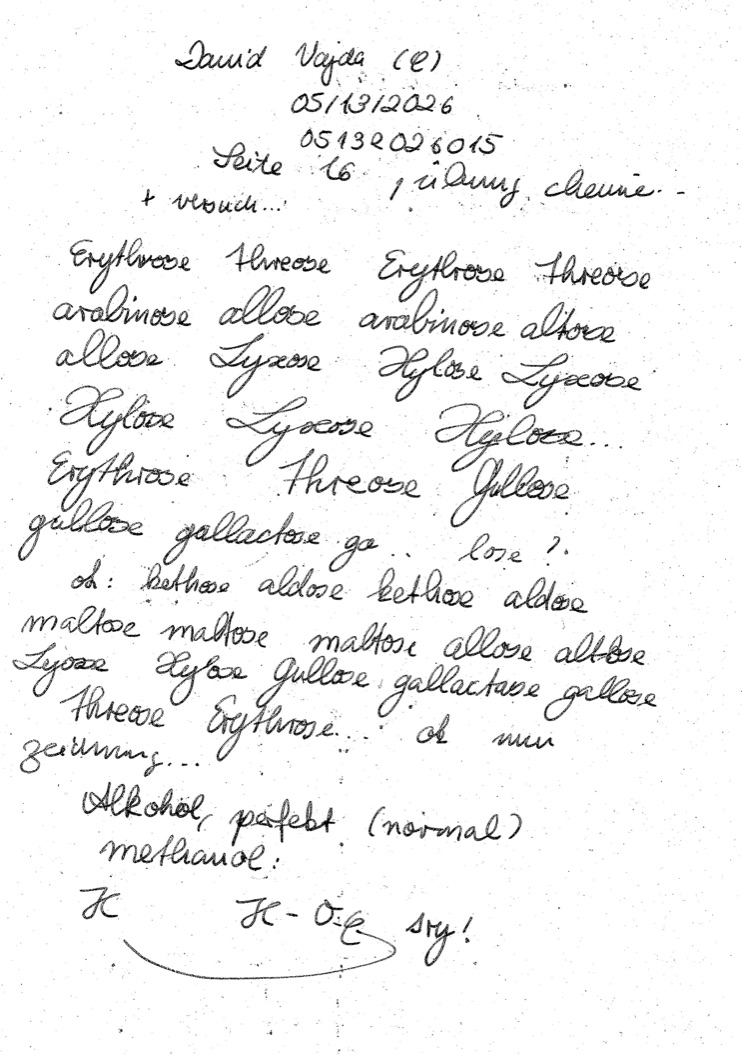 David Vajda (C)
05/13/2026
05132026015
Seite 16, übung, chemie..
+ versuch...
Erythrose threose Erythrose threose
arabinose allose arabinose altose
allose Lyxose Xylose Lyxose
Xylose Lyxose Xylose...
Erythrose threose Gullose
gullose gallactose ga .. lose ?.
ok: kethose aldose kethose aldose
maltose maltose maltose allose altlose
Lyxose Xylose Gullose gallactase gallose
threose Erythrose... ok nun
zeichnung...
Alkohol, perfekt (normal)
methanol:
H H-O-C sry!